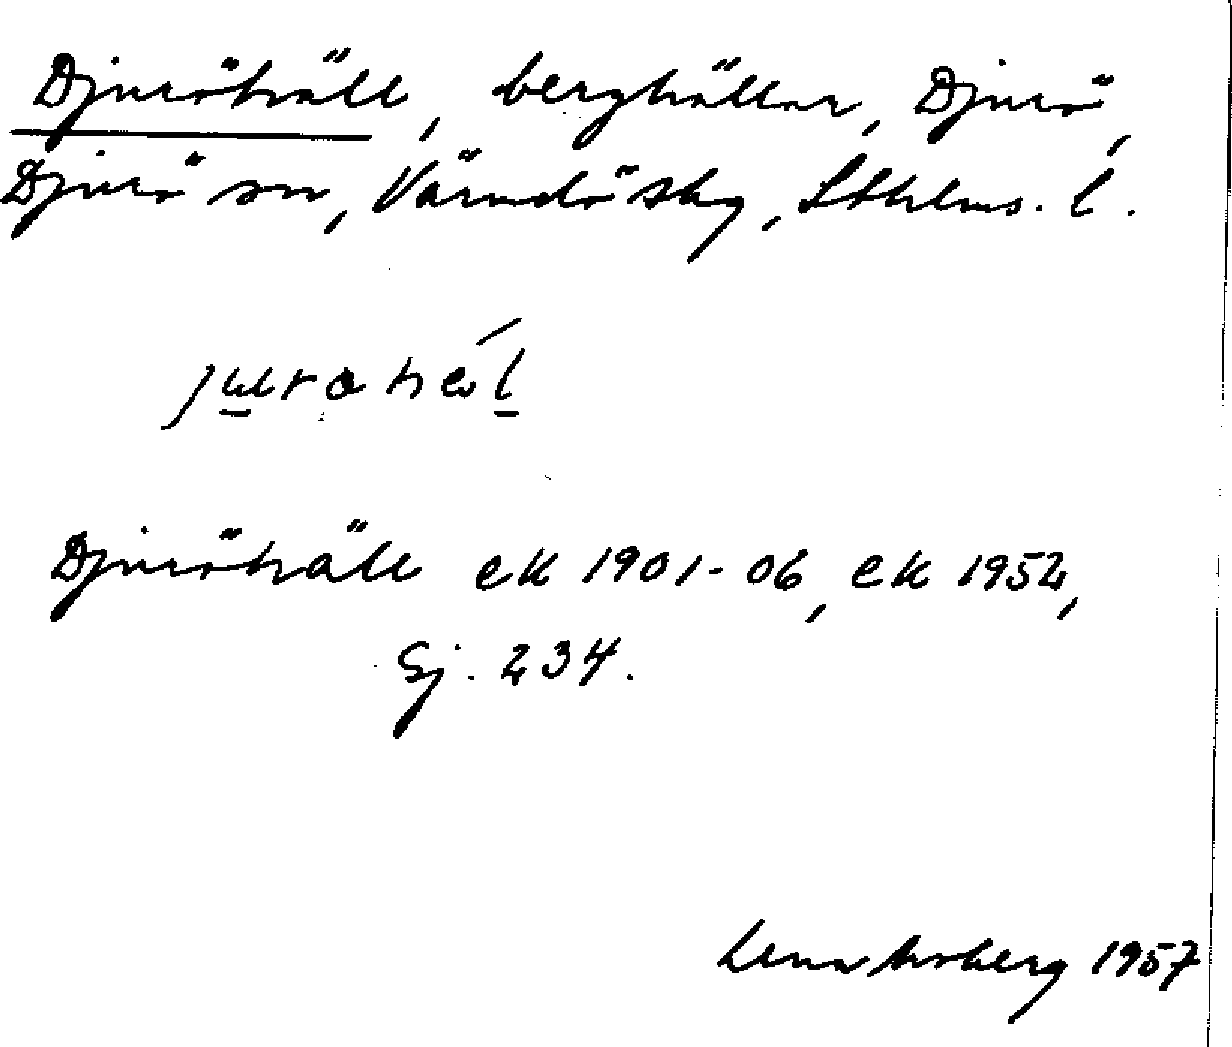 Djuröhäll, berghällar, Djurö,
Djurö sn, Värmdö skg, Sthlms. l.
Djuröhäll ek 1901-06, ek 1952,
Sj. 234.
Lena Moberg 1957